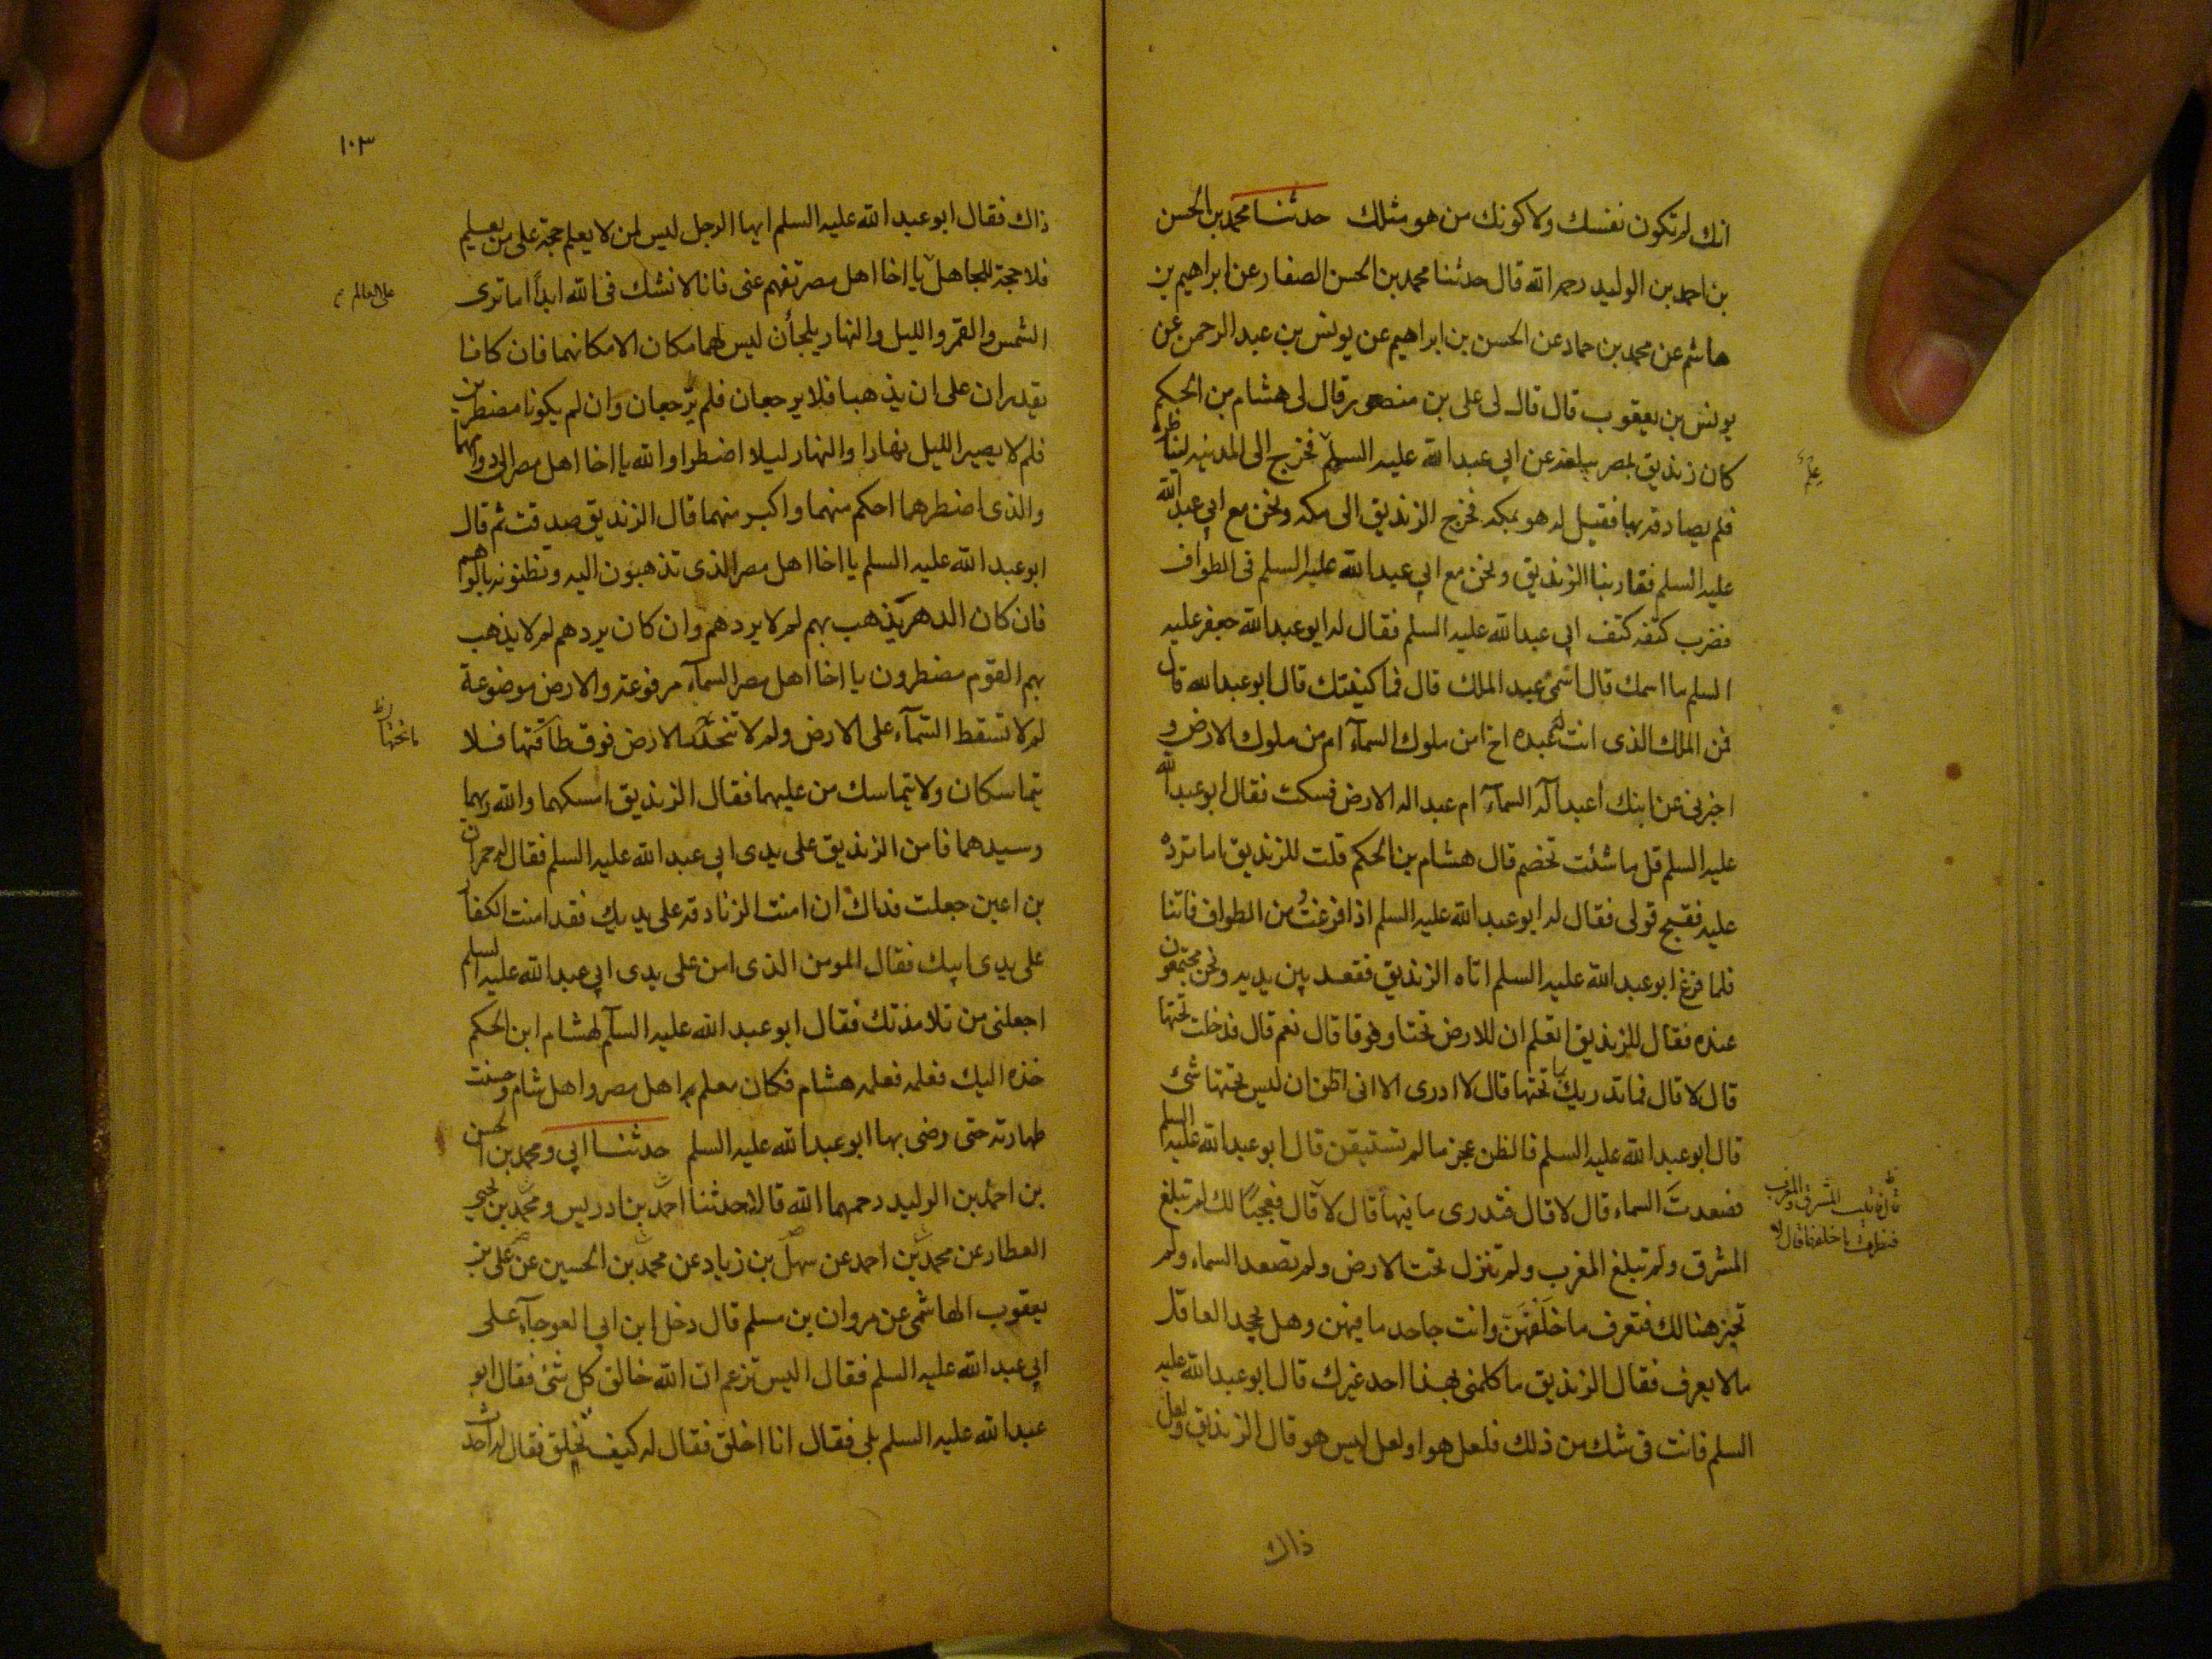 انك لم تكون نفسك ولا كونك من هو مثلك حدثنا محمد بن الحسن
بن احمد بن الوليد رحمه الله قال حدثنا محمد بن الحسن الصفار عن ابراهيم بن
هاشم عن محمد بن حماد عن الحسن بن ابراهيم عن يونس بن عبد الرحمن عن
يونس بن يعقوب قال قال لى على بن منصور قال لى هشام بن الحكم
كان زنديق بمصر يبلغه عن ابي عبد الله عليه السلم فخرج الى المدينه ليناظره
علم
فلم يصادفه بها فقيل له هو بمكه فخرج الزنديق الى مكه ونحن مع ابي عبد الله
عليه السلم فقاربنا الزنديق ونحن مع ابي عبد الله عليه السلم فى الطواف
فضرب كتفه كتف ابي عبد الله عليه السلم فقال له ابو عبد الله جعفر عليه
السلم ما اسمك قال اسمى عبد الملك قال فما كنيتك قال ابو عبد الله قال
فمن الملك الذى انت له عبده امن ملوك السمآء ام من ملوك الارض و
اخبرنى عن ابنك اعبد اله السمآء ام عبد اله الارض فسكت فقال ابو عبد الله
عليه السلم قل ما شئت تخصم قال هشام بن الحكم قلت للزنديق اما ترد
عليه فقبح قولى فقال له ابو عبد الله عليه السلم اذا فرغت من الطواف فاتنا
فلما فرغ ابو عبد الله عليه السلم اتاه الزنديق فقعد بين يديه ونحن مجتمعون
عنده فقال للزنديق اتعلم ان للارض تحتا وفوقا قال نعم قال فدخلت تحتها
قال لا قال فما يدريك ما تحتها قال لا ادرى الا انى اظن ان ليس تحتها شئ
قال ابو عبد الله عليه السلم فالظن عجز ما لم تستيقن قال ابو عبد الله عليه السلم
فصعدت السماء قال لا قال فتدرى ما فيها قال لا قال فعجبًا لك لم تبلغ
قال فاتيت المشرق والمغرب
فنظرت ما خلفهما قال لا
المشرق ولم تبلغ المغرب ولم تنزل تحت الارض ولم تصعد السماء ولم
تجز هنالك فتعرف ما خلفهن وانت جاحد ما فيهن وهل يجحد العاقل
ما لا يعرف فقال الزنديق ما كلمنى بهذا احد غيرك قال ابو عبد الله عليه
السلم فانت فى شك من ذلك فلعل هو او لعل ليس هو قال الزنديق ولعل
ذاك
١٠٣
ذاك فقال ابو عبد الله عليه السلم ايها الرجل ليس لمن لا يعلم حجة على من يعلم
فلا حجة للجاهل يا اخا اهل مصر تفهم عنى فانا لا نشك فى الله ابدًا اما ترى
على العالم
الشمس والقمر والليل والنهار يلجأن ليس لهما مكان الا مكانهما فان كانا
يقدران على ان يذهبا فلا يرجعان فلم يرجعان وان لم يكونا مضطرين
فلم لا يصير الليل نهارا والنهار ليلا اضطرا والله يا اخا اهل مصر الى دوامهما
والذى اضطرهما احكم منهما واكبر منهما قال الزنديق صدقت ثم قال
ابو عبد الله عليه السلم يا اخا اهل مصر الذى تذهبون اليه وتظنونه بالوهم
فان كان الدهر يذهب بهم لم لا يردهم وان كان يردهم لم لا يذهب
بهم القوم مضطرون يا اخا اهل مصر السمآء مرفوعة والارض موضوعة
لم لا تسقط السمآء على الارض ولم لا تنحدر الارض فوق طاقتها فلا
ما تحتها
يتماسكان ولا يتماسك من عليهما فقال الزنديق امسكهما والله ربهما
وسيدهما فامن الزنديق على يدى ابي عبد الله عليه السلم فقال له حمران
بن اعين جعلت فداك ان امنت الزنادقه على يديك فقد امنت الكفار
على يدى ابيك فقال المومن الذى امن على يدى ابي عبد الله عليه السلم
اجعلنى من تلامذتك فقال ابو عبد الله عليه السلم لهشام ابن الحكم
خذه اليك فعلمه فعلمه هشام فكان معلم اهل مصر واهل شام وحسنت
طهارته حتى رضى بها ابو عبد الله عليه السلم حدثنا ابي ومحمد بن الحسن
بن احمد بن الوليد رحمهما الله قالا حدثنا احمد بن ادريس ومحمد بن يحيى
العطار عن محمد بن احمد عن سهل بن زياد عن محمد بن الحسين عن على بن
يعقوب الهاشمى عن مروان بن مسلم قال دخل ابن ابي العوجآء على
ابي عبد الله عليه السلم فقال اليس تزعم ان الله خالق كل شئ فقال ابو
عبد الله عليه السلم بلى فقال انا اخلق فقال له كيف تخلق فقال له احدث